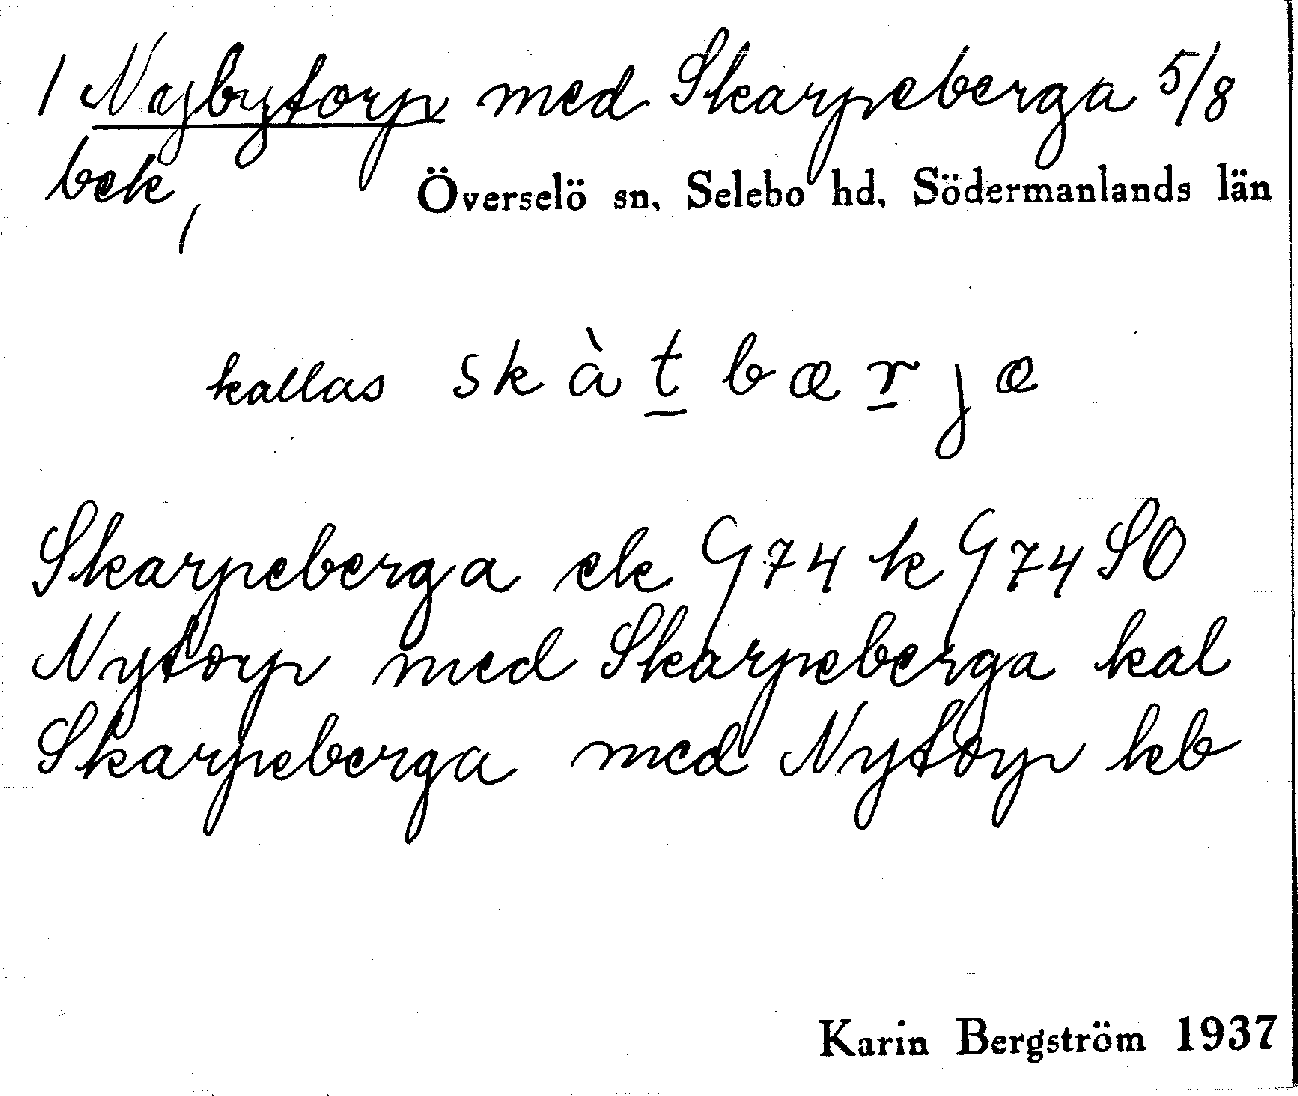 1 Nybytorp med Skarpeberga 5/8
bek,
Överselö sn, Selebo hd, Södermanlands län
kallas skàt̲bær̲jæ
Skarpeberga ek G74 k G74 SO
Nytorp med Skarpeberga kal
Skarpeberga med Nytorp kb
Karin Bergström 1937